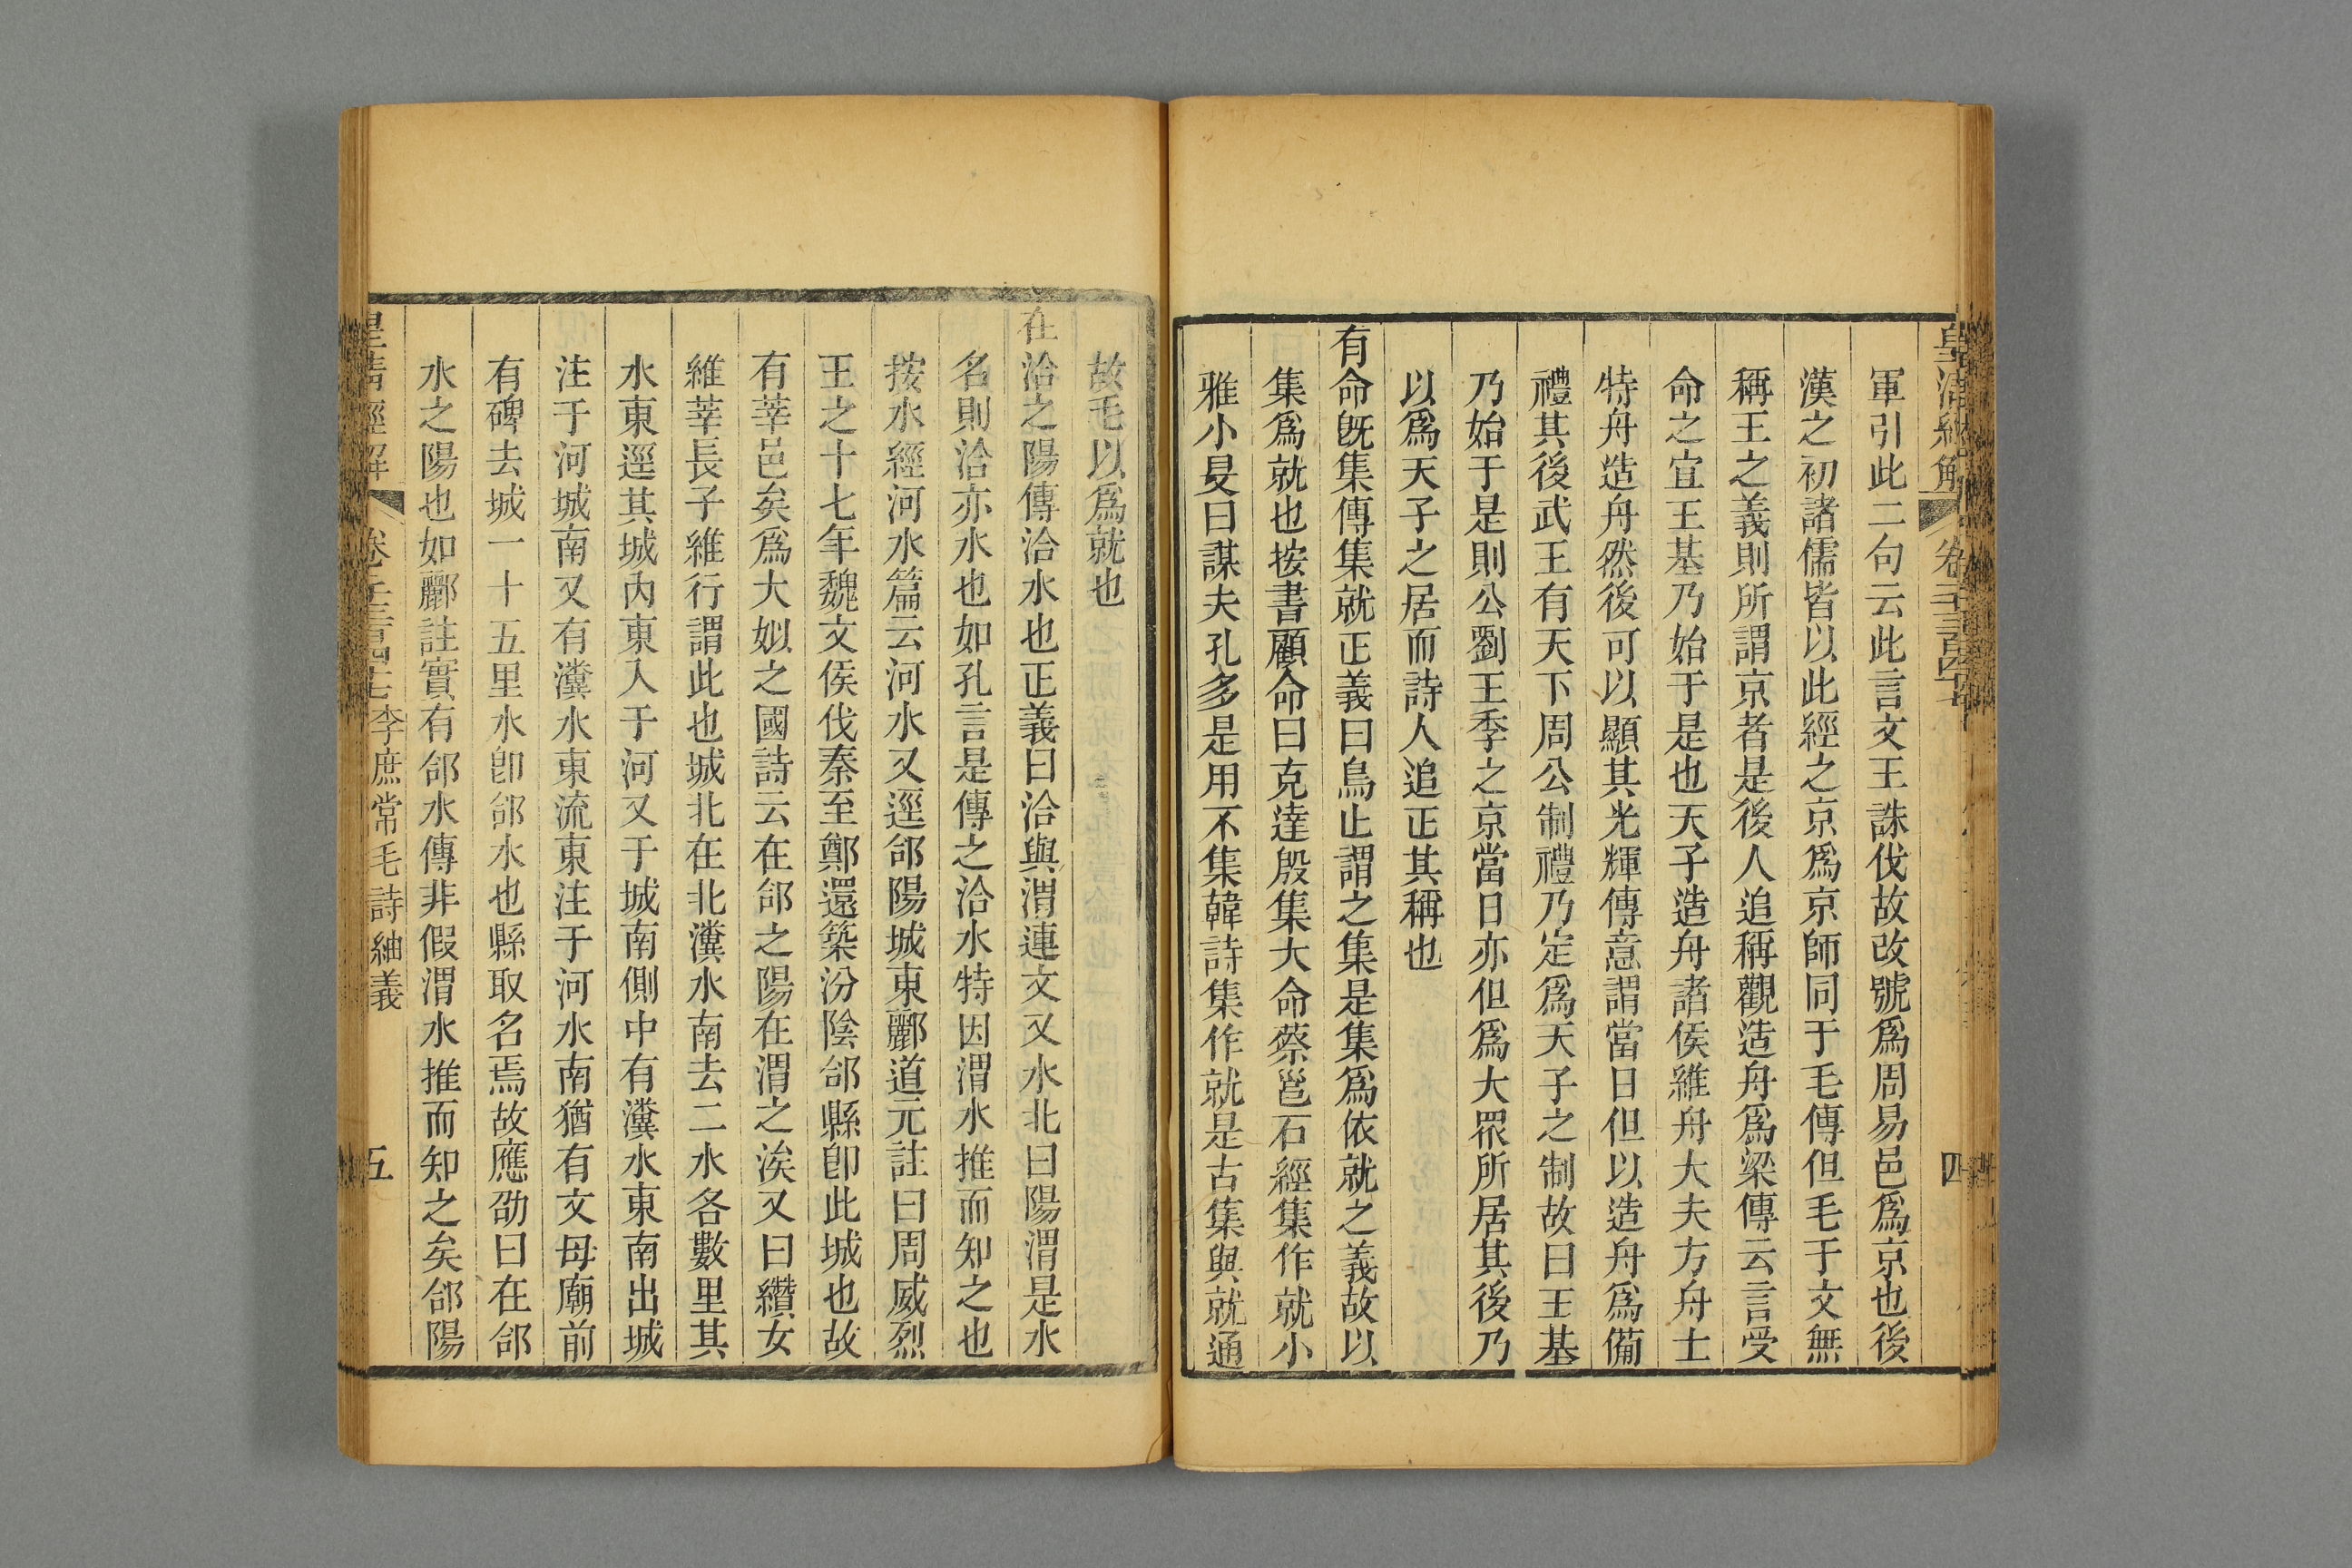 皇清經解
四
軍引此二句云此言文王誅伐故改號爲周易邑爲京也後
漢之初諸儒皆以此經之京爲京師同于毛傳但毛于文無
稱王之義則所謂京者是後人追稱觀造舟爲梁傳云言受
命之宜王基乃始于是也天子造舟諸侯維舟大夫方舟士
特舟造舟然後可以顯其光輝傳意謂當日但以造舟爲備
禮其後武王有天下周公制禮乃定爲天子之制故曰王基
乃始于是則公劉王季之京當日亦但爲大眾所居其後乃
以爲天子之居而詩人追正其稱也
有命旣集傳集就正義曰鳥止謂之集是集爲依就之義故以
集爲就也按書顧命曰克達殷集大命蔡邕石經集作就小
雅小旻曰謀夫孔多是用不集韓詩集作就是古集與就通
故毛以爲就也
在洽之陽傳洽水也正義曰洽與渭連文又水北曰陽渭是水
名則洽亦水也如孔言是傳之洽水特因渭水推而知之也
按水經河水篇云河水又逕郃陽城東酈道元註曰周威烈
王之十七年魏文侯伐秦至鄭還築汾陰郃縣卽此城也故
有莘邑矣爲大姒之國詩云在郃之陽在渭之涘又曰纘女
維莘長子維行謂此也城北在北瀵水南去二水各數里其
水東逕其城內東入于河又于城南側中有瀵水東南出城
注于河城南又有瀵水東流東注于河水南猶有文母廟前
有碑去城一十五里水卽郃水也縣取名焉故應劭曰在郃
水之陽也如酈註實有郃水傳非假渭水推而知之矣郃陽
皇清經解
李庶常毛詩紬義
五